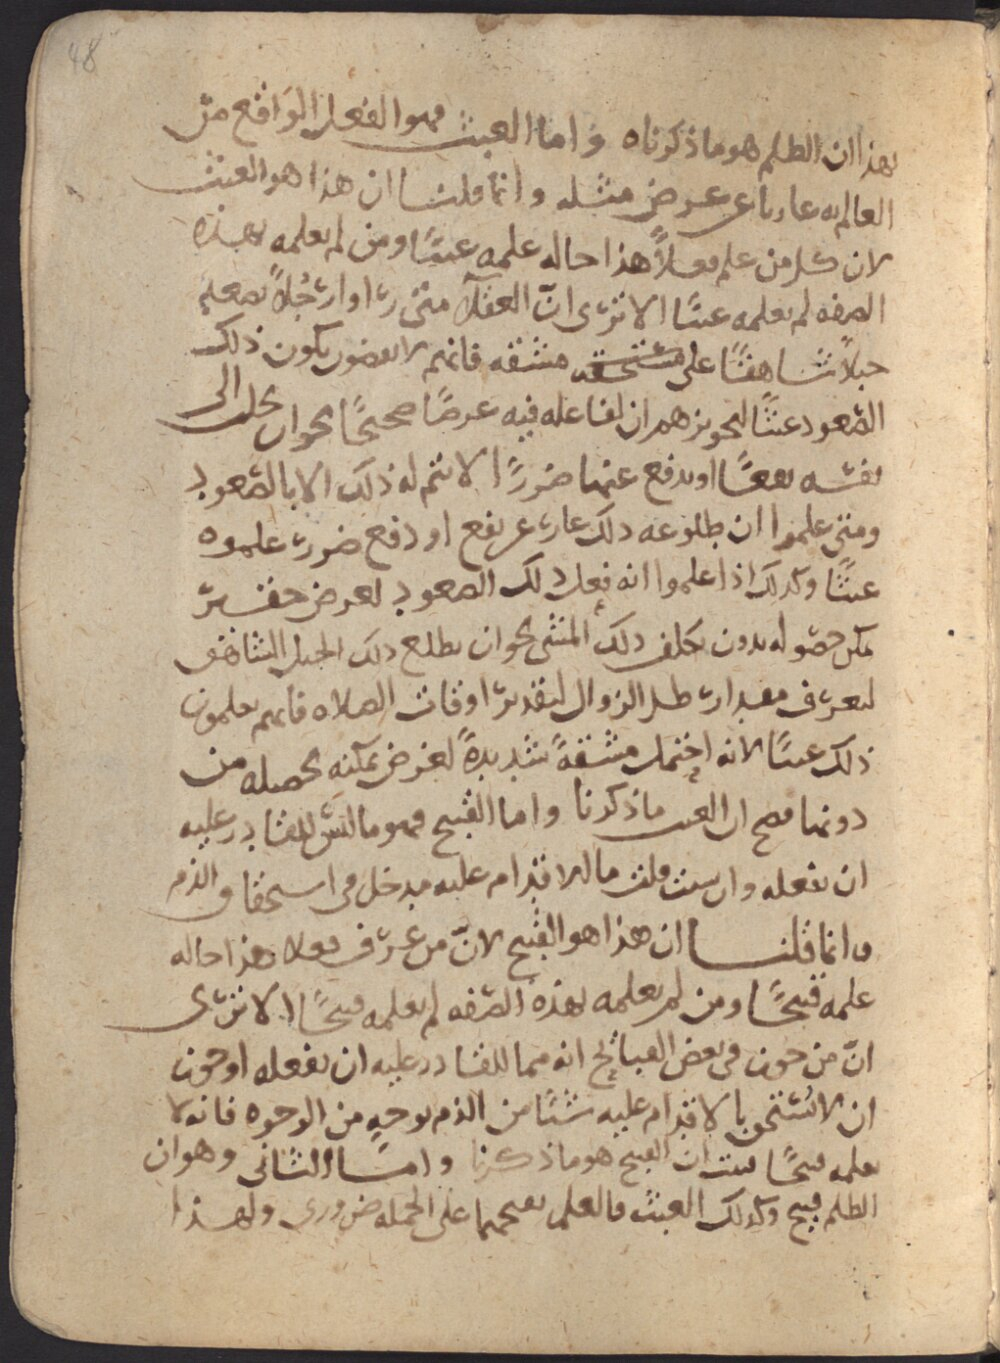 48
بهذا ان الظلم هو ما ذكرناه واما العبث فهو الفعل الواقع من
العالم به عاريا عن عرض مثله وانما قلنا ان هذا هو العبث
لان كل من علم فعلاً هذا حاله علمه عبثًا ومن لم يعلمه بهذه
الصفه لم يعلمه عبثا الا ترى انّ العقلآ متى راوا رجُلاً يصعد
جبلاً شاهقًا على مشقه فانهم لا يعضون بكون ذلك
الصعود عبثًا لتجويزهم ان لفاعله فيه عرضًا صحيحًا نحو ان يجلب الى
نفسه نفعًا او يدفع عنها ضررًا لا يتم له ذلك الا بالصعود
ومتى علموا ان طلوعه ذلك عار عن نفع او دفع ضرر علموه
عبثًا وكذلك اذا علموا انه فعل ذلك الصعود لعرض حقير
يمكن حصوله بدون تكلف ذلك المشى نحو ان يطلع ذلك الجبل الشاهق
ليعرف مقدار ظل الزوال لتقدير اوقات الصلاه فانهم يعلمون
ذلك عبثًا لانه احتمل مشقةً شديدةً لغرض يمكنه تحصيله من
دونها فصح ان العبث ما ذكرنا واما القبيح فهو ما ليس للقادر عليه
ان يفعله وان شيت قلت ما للاقدام عليه مدخل فى استحقاق الذم
وانما قلنا ان هذا هو القبيح لانّ من عرف فعلا هذا حاله
علمه قبيحًا ومن لم يعلمه بهذه الصفه لم يعلمه قبيحًا الا ترى
انّ من جوز فى بعض القبائح انه مما للقادر عليه ان يفعله او جوز
ان لا يُستحق بالاقدام عليه شئًا من الذم بوجهٍ من الوجوه فانه لا
يعلمه قبيحًا فبت ان القبيح هو ما ذكرنا وامّا الثانى وهو ان
الظلم قبيح وكذلك العبث فالعلم بقبحهما على الجمله ضرورى ولهذا